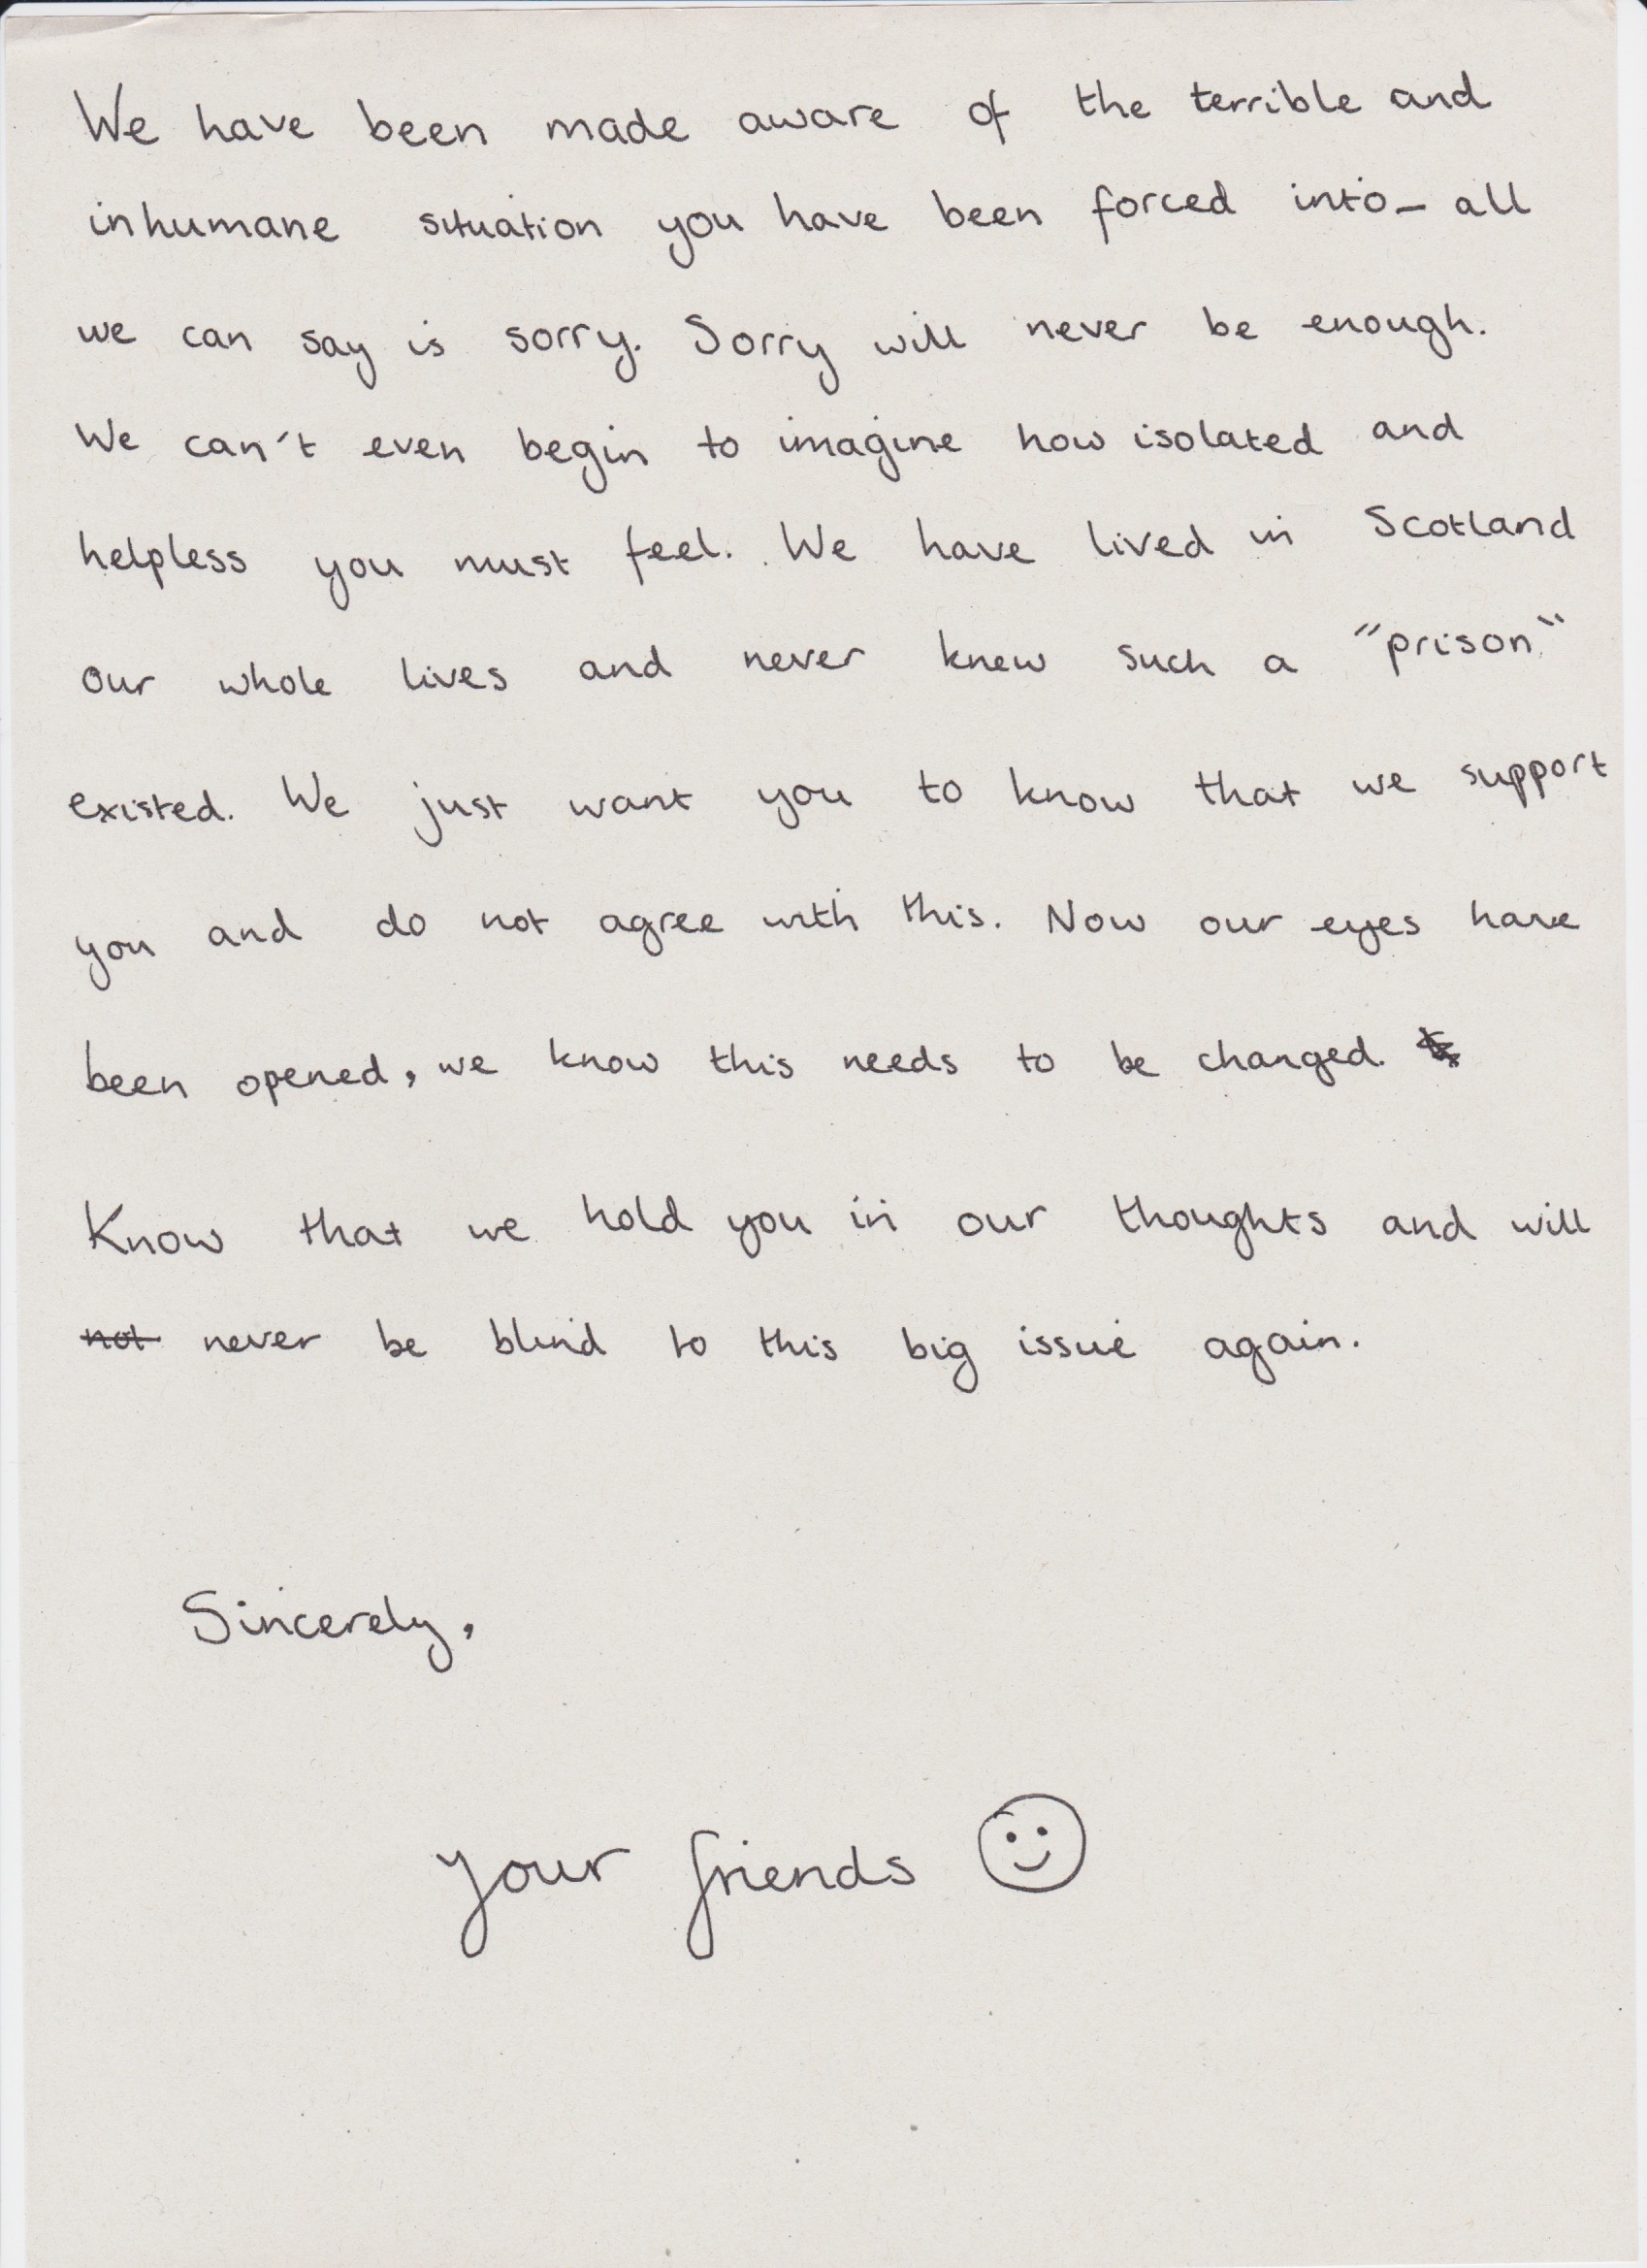 We have been made aware of the terrible and
inhumane situation you have been forced into - all
we can say is sorry. Sorry will never be enough.
We can't even begin to imagine how isolated and
helpless you must feel. We have lived in Scotland
our whole lives and never knew such a "prison"
existed. We just want you to know that we support
you and do not agree with this. Now our eyes have
been opened, we know this needs to be changed.
Know that we hold you in our thoughts and will
not never be blind to this big issue again.
Sincerely,
Your friends